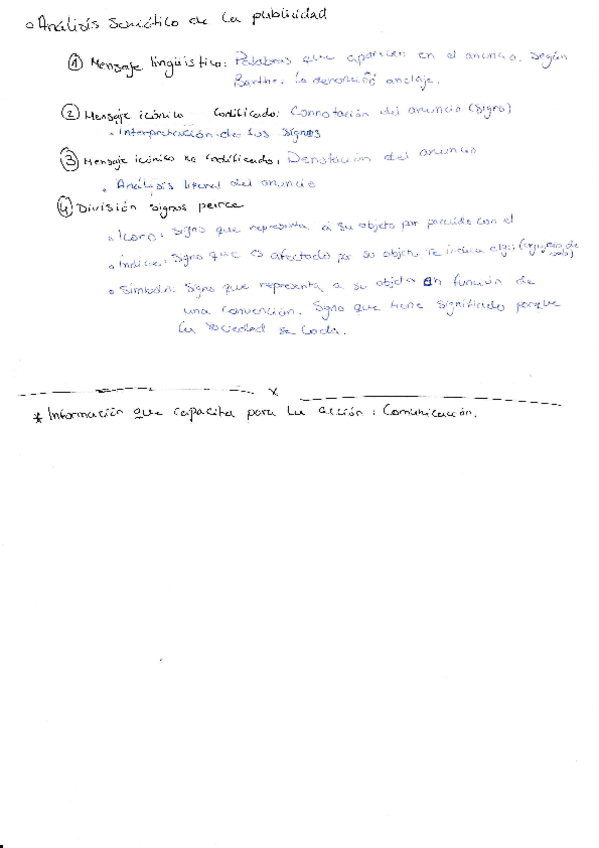 o Análisis Semiótico de la publicidad
① Mensaje lingüistico: Palabras que aparecen en el anuncio. Según
Barthes lo denominó anclaje.
② Mensaje icónico codificado: Connotación del anuncio (signo)
• Interpretración de los signos
③ Mensaje icónico no codificado: Denotación del anuncio
• Análisis literal del anuncio
④ División signos peirce
• Icono: signo que representa a su objeto por parecido con el
• Índice: Signo que es afectado por su objeto. Te indica algo
• Símbolo: Signo que representa a su objeto en función de
una convención. Signo que tiene significado porque
la sociedad se lo da.
x
* Información que capacita para la acción: Comunicación.